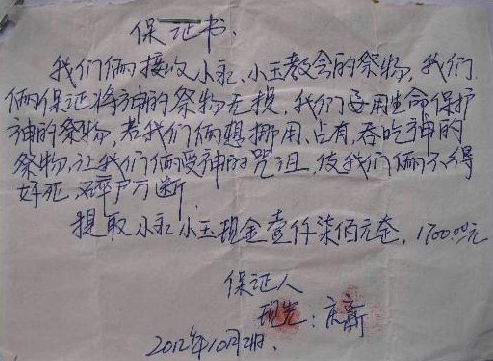 保证书.
我们俩接收小永、小玉教会的祭物,我们
俩保证将神的祭物无损,我们要用生命保护
神的祭物,若我们俩想挪用、占有、吞吃神的
祭物,让我们俩受神的咒诅,使我们俩不得
好死 碎尸万断.
提取小永 小玉现金壹仟柒佰元整, 1700.00元
保证人
2012年10月2日.